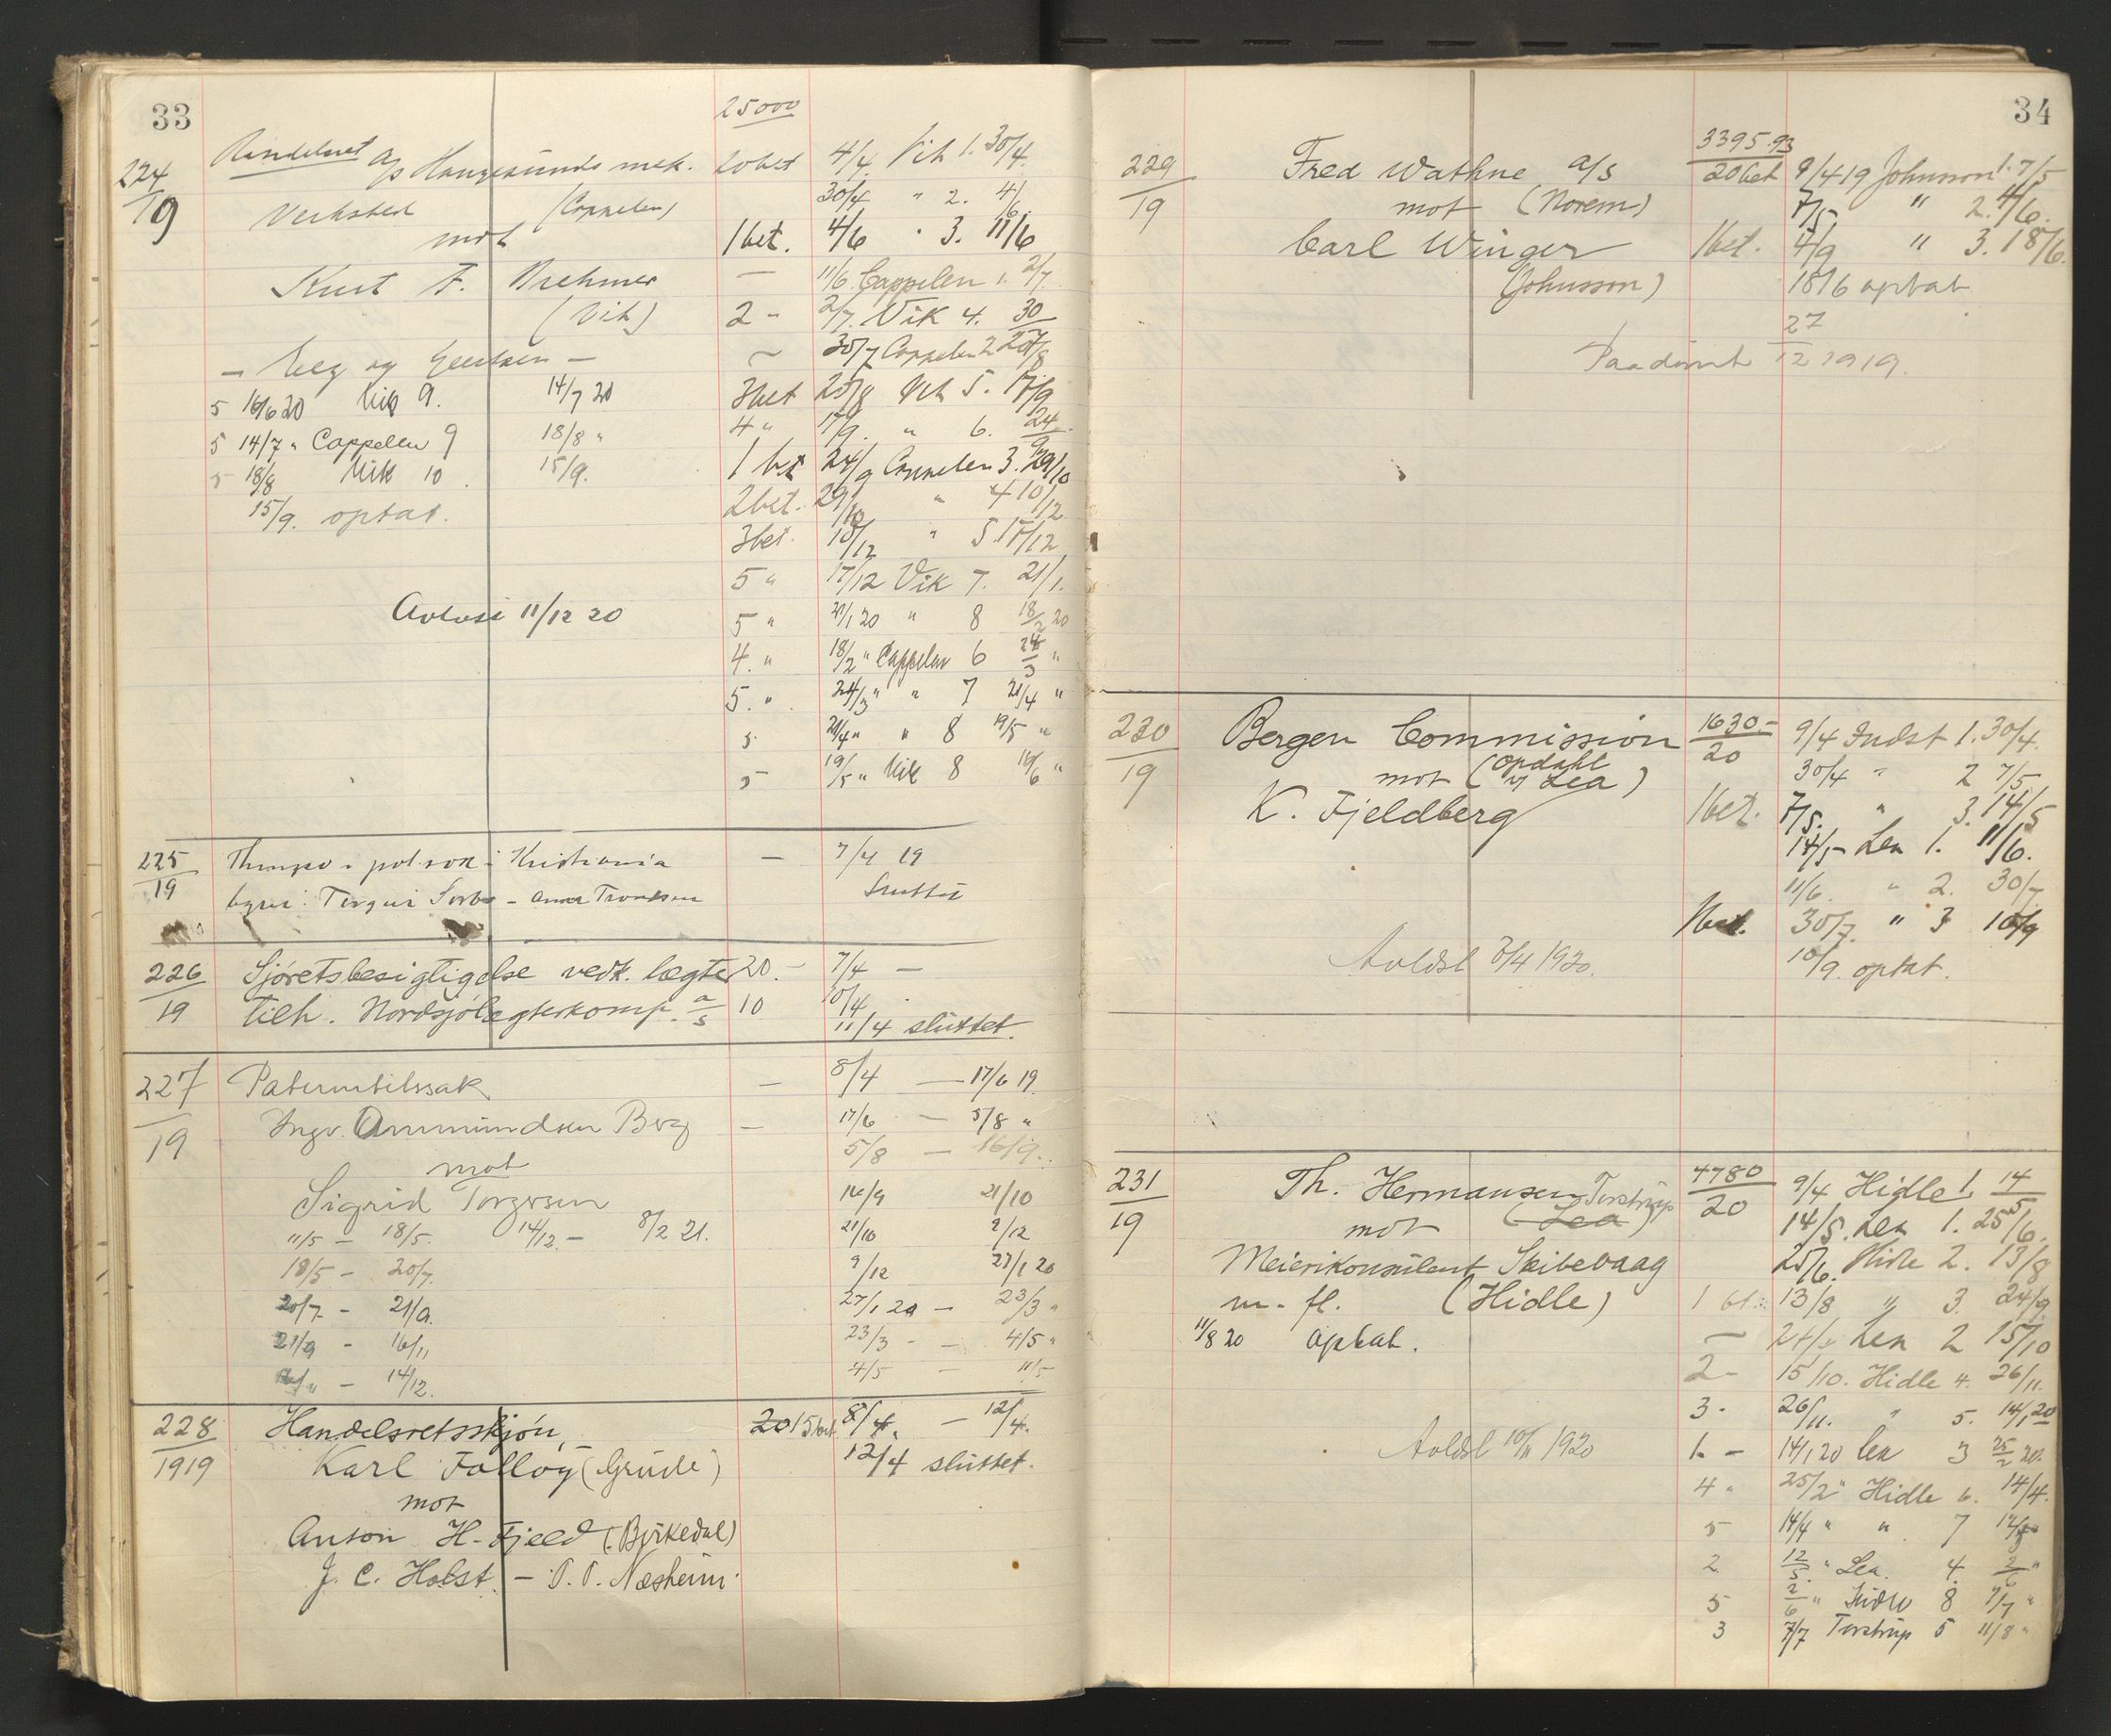 33
25000
224/19 A/s Haugesunds mek. 20 bet 4/4. Vik 1. 30/4.
Verksted (Cappelen) 30/4 " 2. 4/6.
mot 1 bet. 4/6 " 3. 11/6
Kurt F. Brehmer — 11/6 Cappelen 1. 2/7.
(Vik) 2 " 2/7. Vik 4. 30/7
30/7 Cappelen 2
5 16/6 20 Vik 9. 14/7 20 3 bet Vik 5. 17/9
5 14/7 " Cappelen 9 18/8 " 4 " 17/9. " 6. 24/9
5 18/8 Vik 10. 15/9. 1 bet 24/9 Cappelen 3. 29/10
15/9. optat. 2 bet. 29/10 " 4 10/12
3 bet. 10/12 " 5 17/12
5 " 17/12 Vik 7. 21/1.
11/12 20 5 " 21/1 20 " 8 18/2 20
4. " 18/2 " Cappelen 6 24/3 "
5. " 24/3 " " 7 21/4 "
5 21/4 " " 8 19/5 "
5 19/5 " Vik 8 16/6 "
225/19 Kristiania — 7/4 19
Sluttet
226/19 Sjøretsbesigtigelse vedk. lægter 20.- 7/4 —
tilh. Nordsjølægterkomp. a/s 10 10/4
11/4 sluttet.
227/19 Paternitetssak — 8/4 — 17/6 19.
Ingv. Ammundsen Berg — 17/6 — 5/8 "
mot 5/8 — 16/9.
Sigrid Torgersen 16/9 21/10
11/5 — 18/5. 14/12. — 8/2 21. 21/10 9/12
18/5 — 20/7. 9/12 27/1 20
20/7 — 21/9. 27/1 20 — 23/3 "
21/9 - 16/11 23/3 - — 4/5 "
— 14/12. 4/5 — 11/5
228/1919 Handelsretsskjøn, 8/4. — 12/4.
Karl Falloy (Grude) 12/4 sluttet.
mot
Anton H. Fjeld (Birkedal)
J. C. Holst — P. P. Næsheim
34
3395.93
229/19 Fred Wathne a/s 20 bet 9/4 19 Johnsson 1. 7/5
mot (Norem) 7/5 " 2. 4/6.
Carl Winger 1 bet. " 3. 18/6.
(Johnsson) 18/6 optat
Paadømt 27/12 1919.
230/19 Bergen Commission 1630.-/20 9/4 Indst 1. 30/4.
mot (Opdahl v/ Lea) 30/4 " 2 7/5
K. Fjeldberg 1 bet. 7/5. " 3. 14/5
14/5 Lea 1. 11/6.
11/6. " 2. 30/7
1 bet. 30/7. " 3 10/9
Avldst 1920. 10/9. optat.
231/19 Th. Hermansen Torstrup 4780/20 9/4 Hidle 1. 14/5
mot (Lea) 14/5. Lea 1. 25/6.
Meierikonsulent Skibevaag 25/6. Hidle 2. 13/8
m. fl. (Hidle) 1 bt. 13/8 " 3. 24/9
11/8 20 optat. — 24/9 Lea 2 15/10
2 - 15/10. Hidle 4. 26/11.
3 - 26/11. " 5. 14/1 20
Avldst 1920 1 - 14/1 20 Lea 3 25/2 20.
4 " 25/2 " Hidle 6. 14/4.
5 14/4 " " 7 12/5
2 12/5. " Lea. 4. 2/6 "
5 2/6 " Hidle 8 7/7 "
3 7/7 Torstrup 5 11/8 "